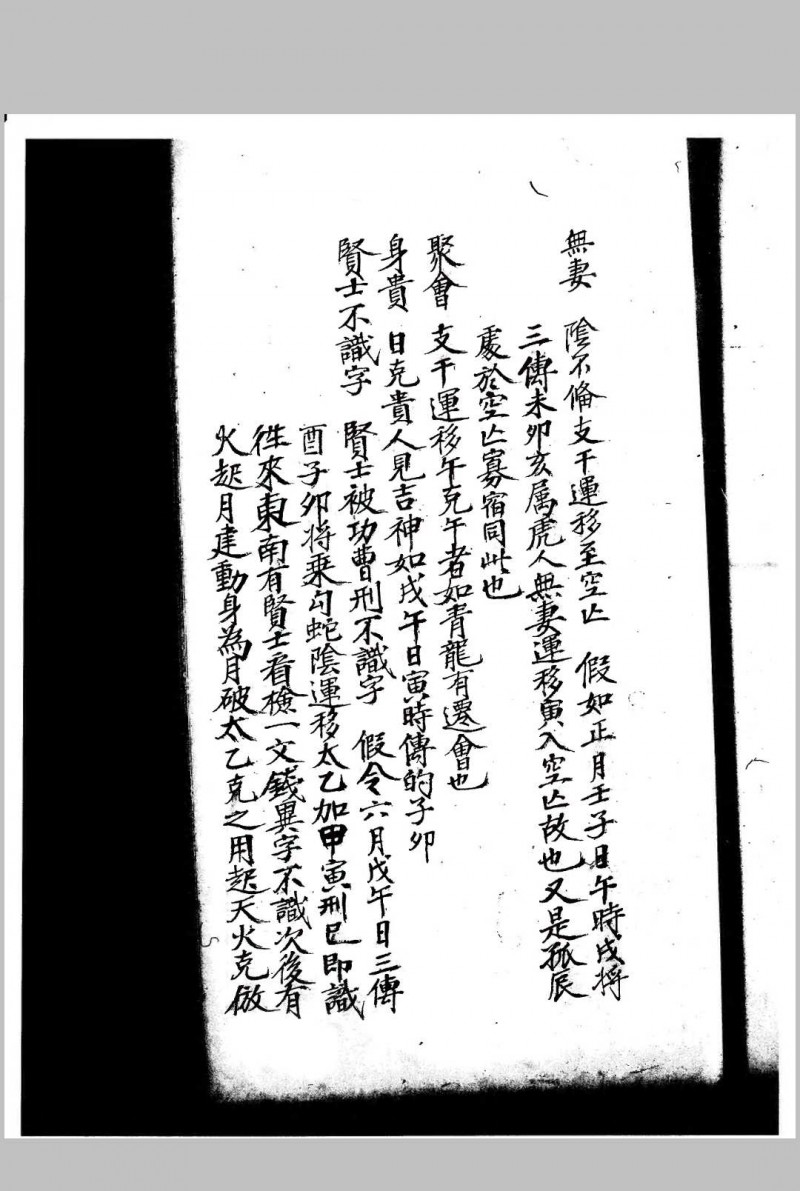 無妻　陰不偹支干運移至空亡　假如正月壬子日午時戌将
三傳未卯亥属虎人無妻運移寅入空亡故也又是孤辰
處於空亡寡宿同此也
聚會　支干運移午克午者如青龍有遷會也
身貴　日克貴人見吉神如戌午日寅時傳的子卯
賢士不識字　賢士被功曹刑不識字　假令六月戊午日三傳
酉子卯将乘勾蛇陰運移太乙加甲寅刑巳即識
徃來東南有賢士看檢一文錢異字不識次後有
火起月建動身為月破太乙克之用起天火克倣